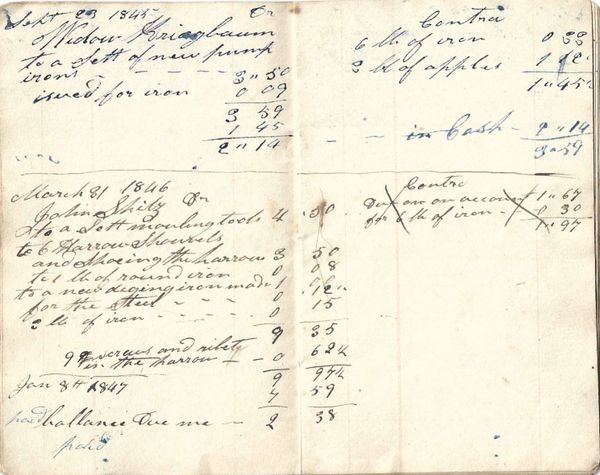 Sept 23 1845 Dr
Widow Bringbaum
to a Sett of new pump
irons - - - - 3" 50
issued for iron 0 09
3 59
1 45
2" 14
Contra
6 lb of iron 0 33
2 lb of apples 1 12
1" 45
- - in Cash - 2" 14
3" 59
March 31 1846
John Shitz Dr
to a Sett mouling tools 4 50
to 6 Harrow Shovels
and Shoeing the harrow 3 50
to 1 lb of round iron 0 08
to a new deging iron made 1 12
for the Steel - - - - 0 15
2 lb of iron - - - - 0
9 35
screws and ribets
in the harrow - 0 62½
9 97½
Jan 8th 1847 7 59
paid ballance Due me - 2 38
paid
Contra
Due on account 1" 67
for 6 lb of iron - 0 30
1" 97